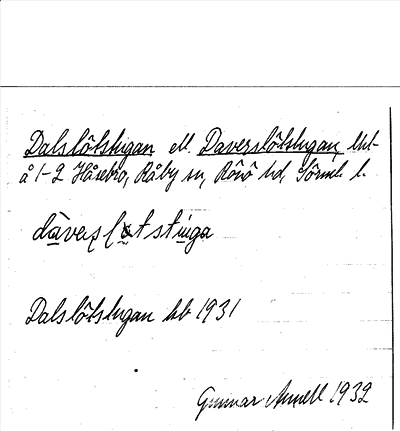 Dalslötstugan ell. Daverslötstugan, Utt-
å 1-2 Håsebro, Råby sn, Rönö hd, Sörml. l.
dàverslötstuga
Dalslötstugan hb 1931
Gunnar Annell 1932